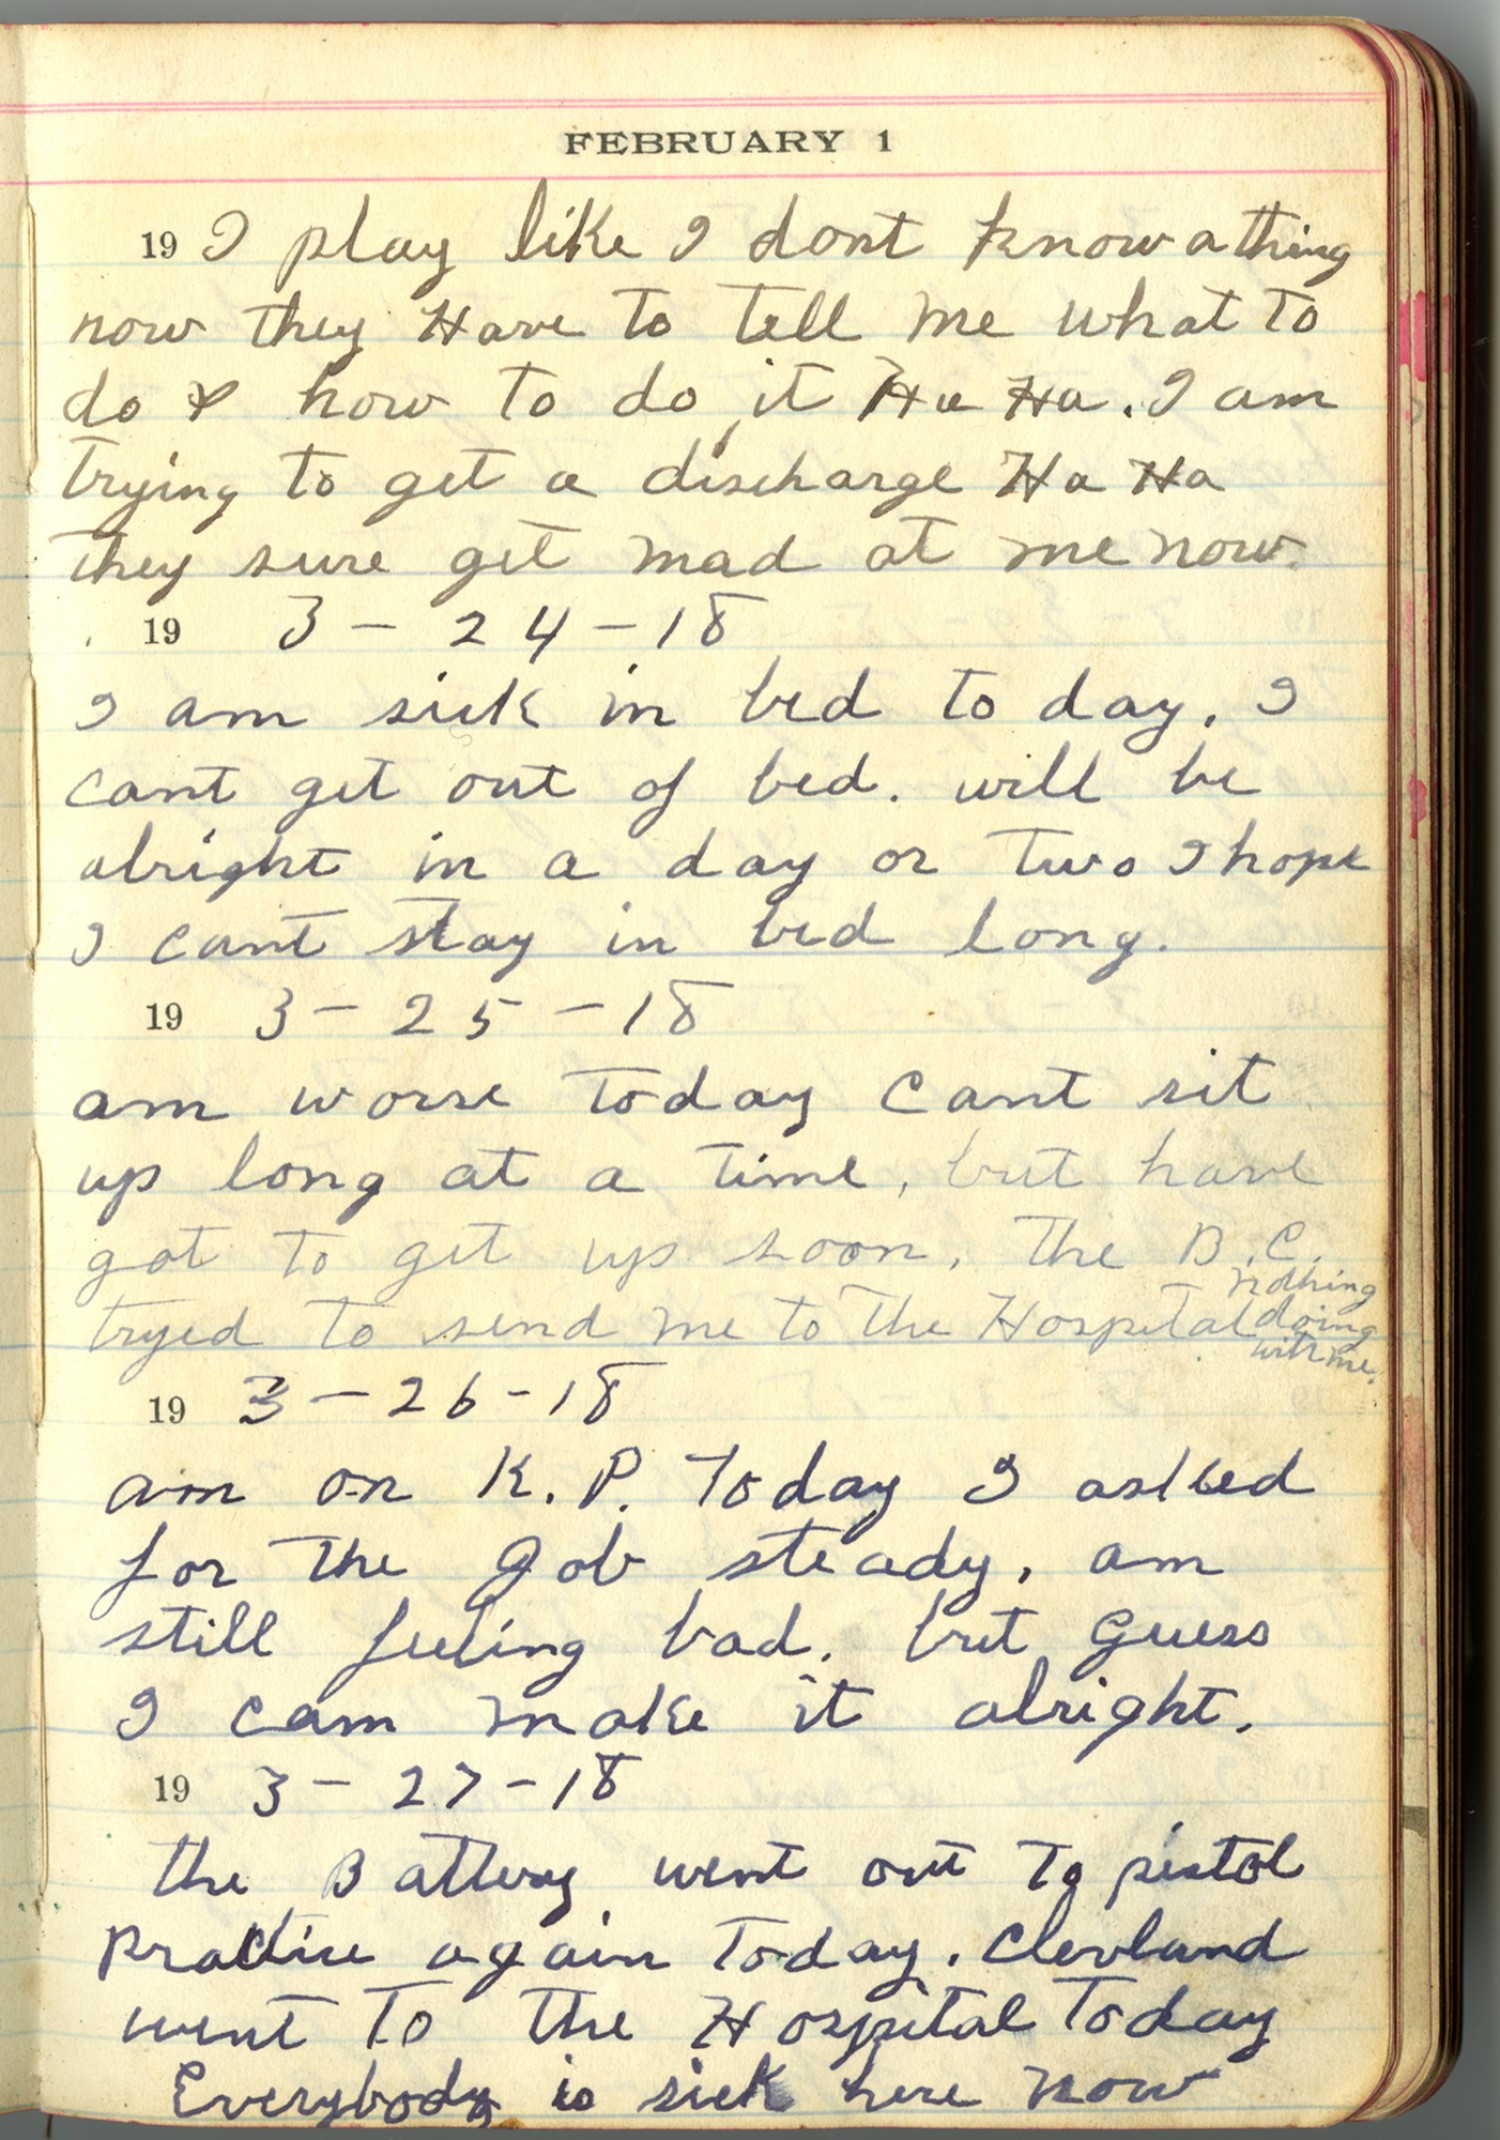 FEBRUARY 1
19 I play like I dont know a thing
now they Have to tell me what to
do & how to do it Ha Ha. I am
trying to get a discharge Ha Ha
they sure get mad at me now.
19 3 - 24 - 18
I am sick in bed to day. I
cant get out of bed. will be
alright in a day or two I hope
I cant stay in bed long.
19 3 - 25 - 18
am worse today cant sit
up long at a time, but have
got to get up soon. The B.C.
tryed to send me to the Hospital nothing
doing
with me.
19 3 - 26 - 18
am on K.P. Today I asked
for the Job steady. am
still feeling bad. but guess
I cam make it alright.
19 3 - 27 - 18
the Battery went out to pistol
Practise again today. Clevland
went to the Hospital today
Everybody is sick here now